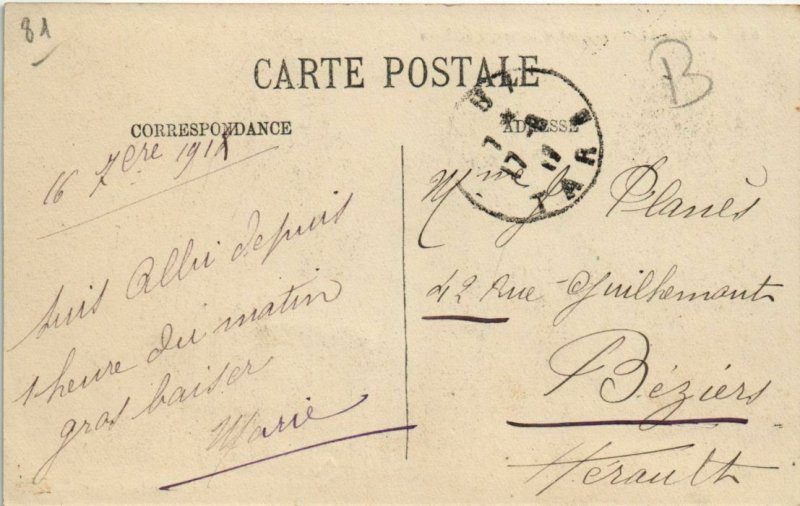 81
B
CARTE POSTALE
CORRESPONDANCE
ADRESSE
16 7bre 191
Suis depuis
1 heure du matin
gros baiser
Marie
TARN
Mme J. Planès
42 rue Guilhemont
Béziers
Hérault